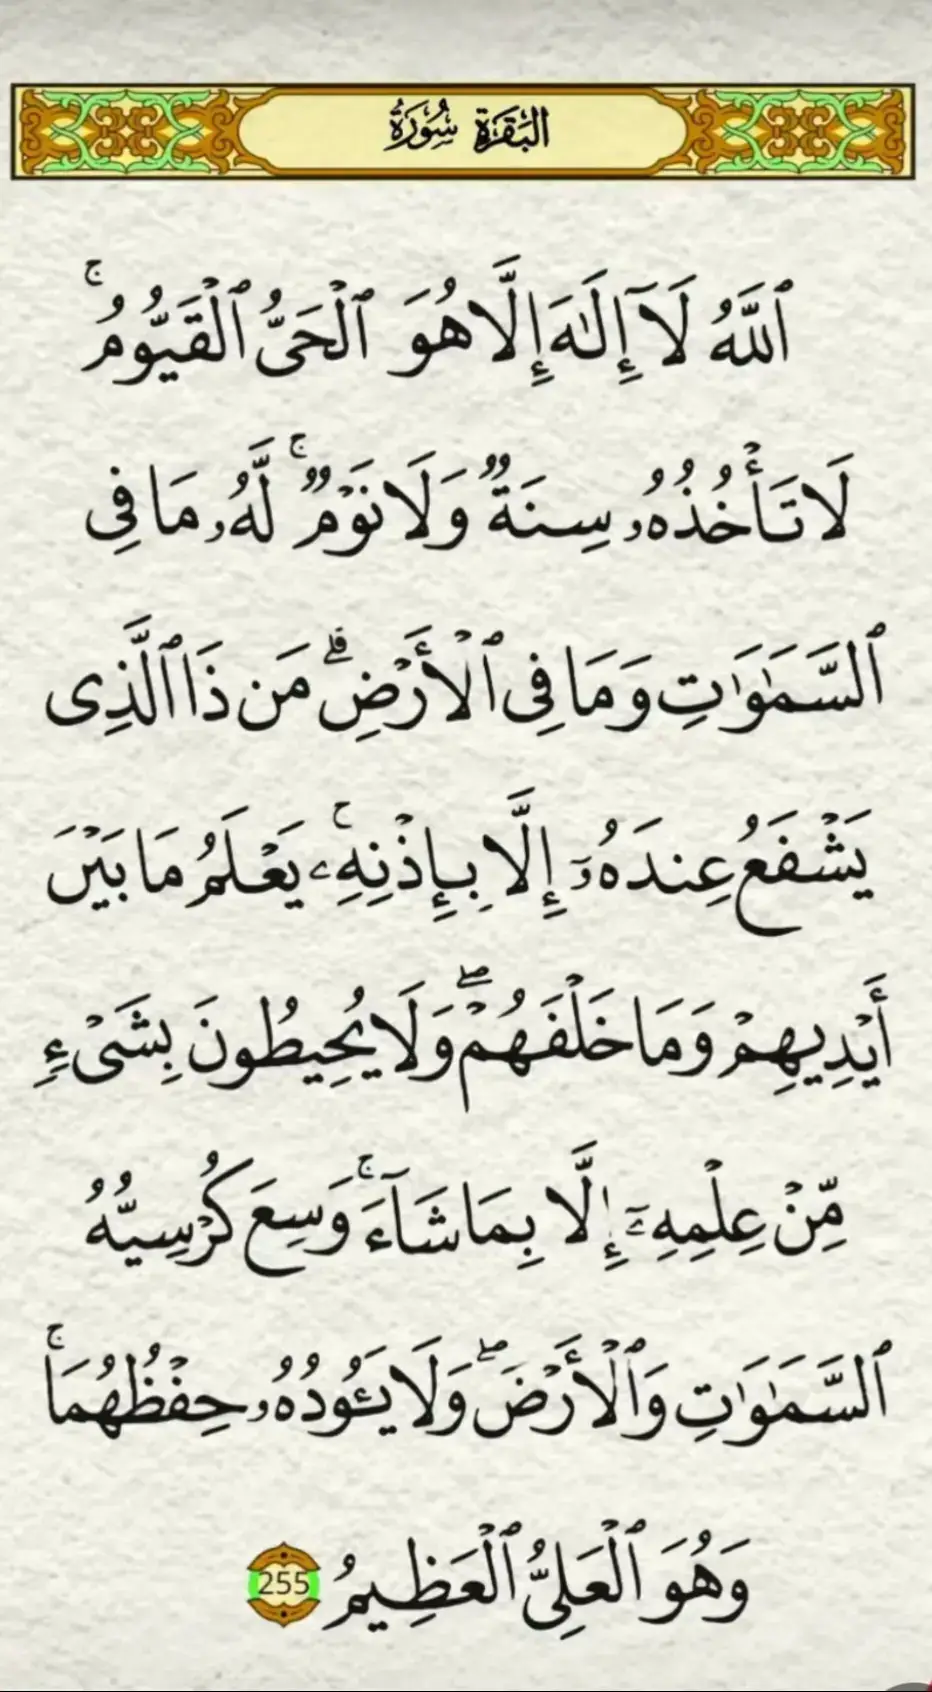 البَقَرَة سُورَةُ
ٱللَّهُ لَآ إِلَٰهَ إِلَّا هُوَ ٱلْحَىُّ ٱلْقَيُّومُ ۚ
لَا تَأْخُذُهُۥ سِنَةٌ وَلَا نَوْمٌ ۚ لَّهُۥ مَا فِى
ٱلسَّمَٰوَٰتِ وَمَا فِى ٱلْأَرْضِ ۗ مَن ذَا ٱلَّذِى
يَشْفَعُ عِندَهُۥٓ إِلَّا بِإِذْنِهِۦ ۚ يَعْلَمُ مَا بَيْنَ
أَيْدِيهِمْ وَمَا خَلْفَهُمْ ۖ وَلَا يُحِيطُونَ بِشَىْءٍ
مِّنْ عِلْمِهِۦٓ إِلَّا بِمَا شَآءَ ۚ وَسِعَ كُرْسِيُّهُ
ٱلسَّمَٰوَٰتِ وَٱلْأَرْضَ ۖ وَلَا يَـُٔودُهُۥ حِفْظُهُمَا ۚ
وَهُوَ ٱلْعَلِىُّ ٱلْعَظِيمُ 255